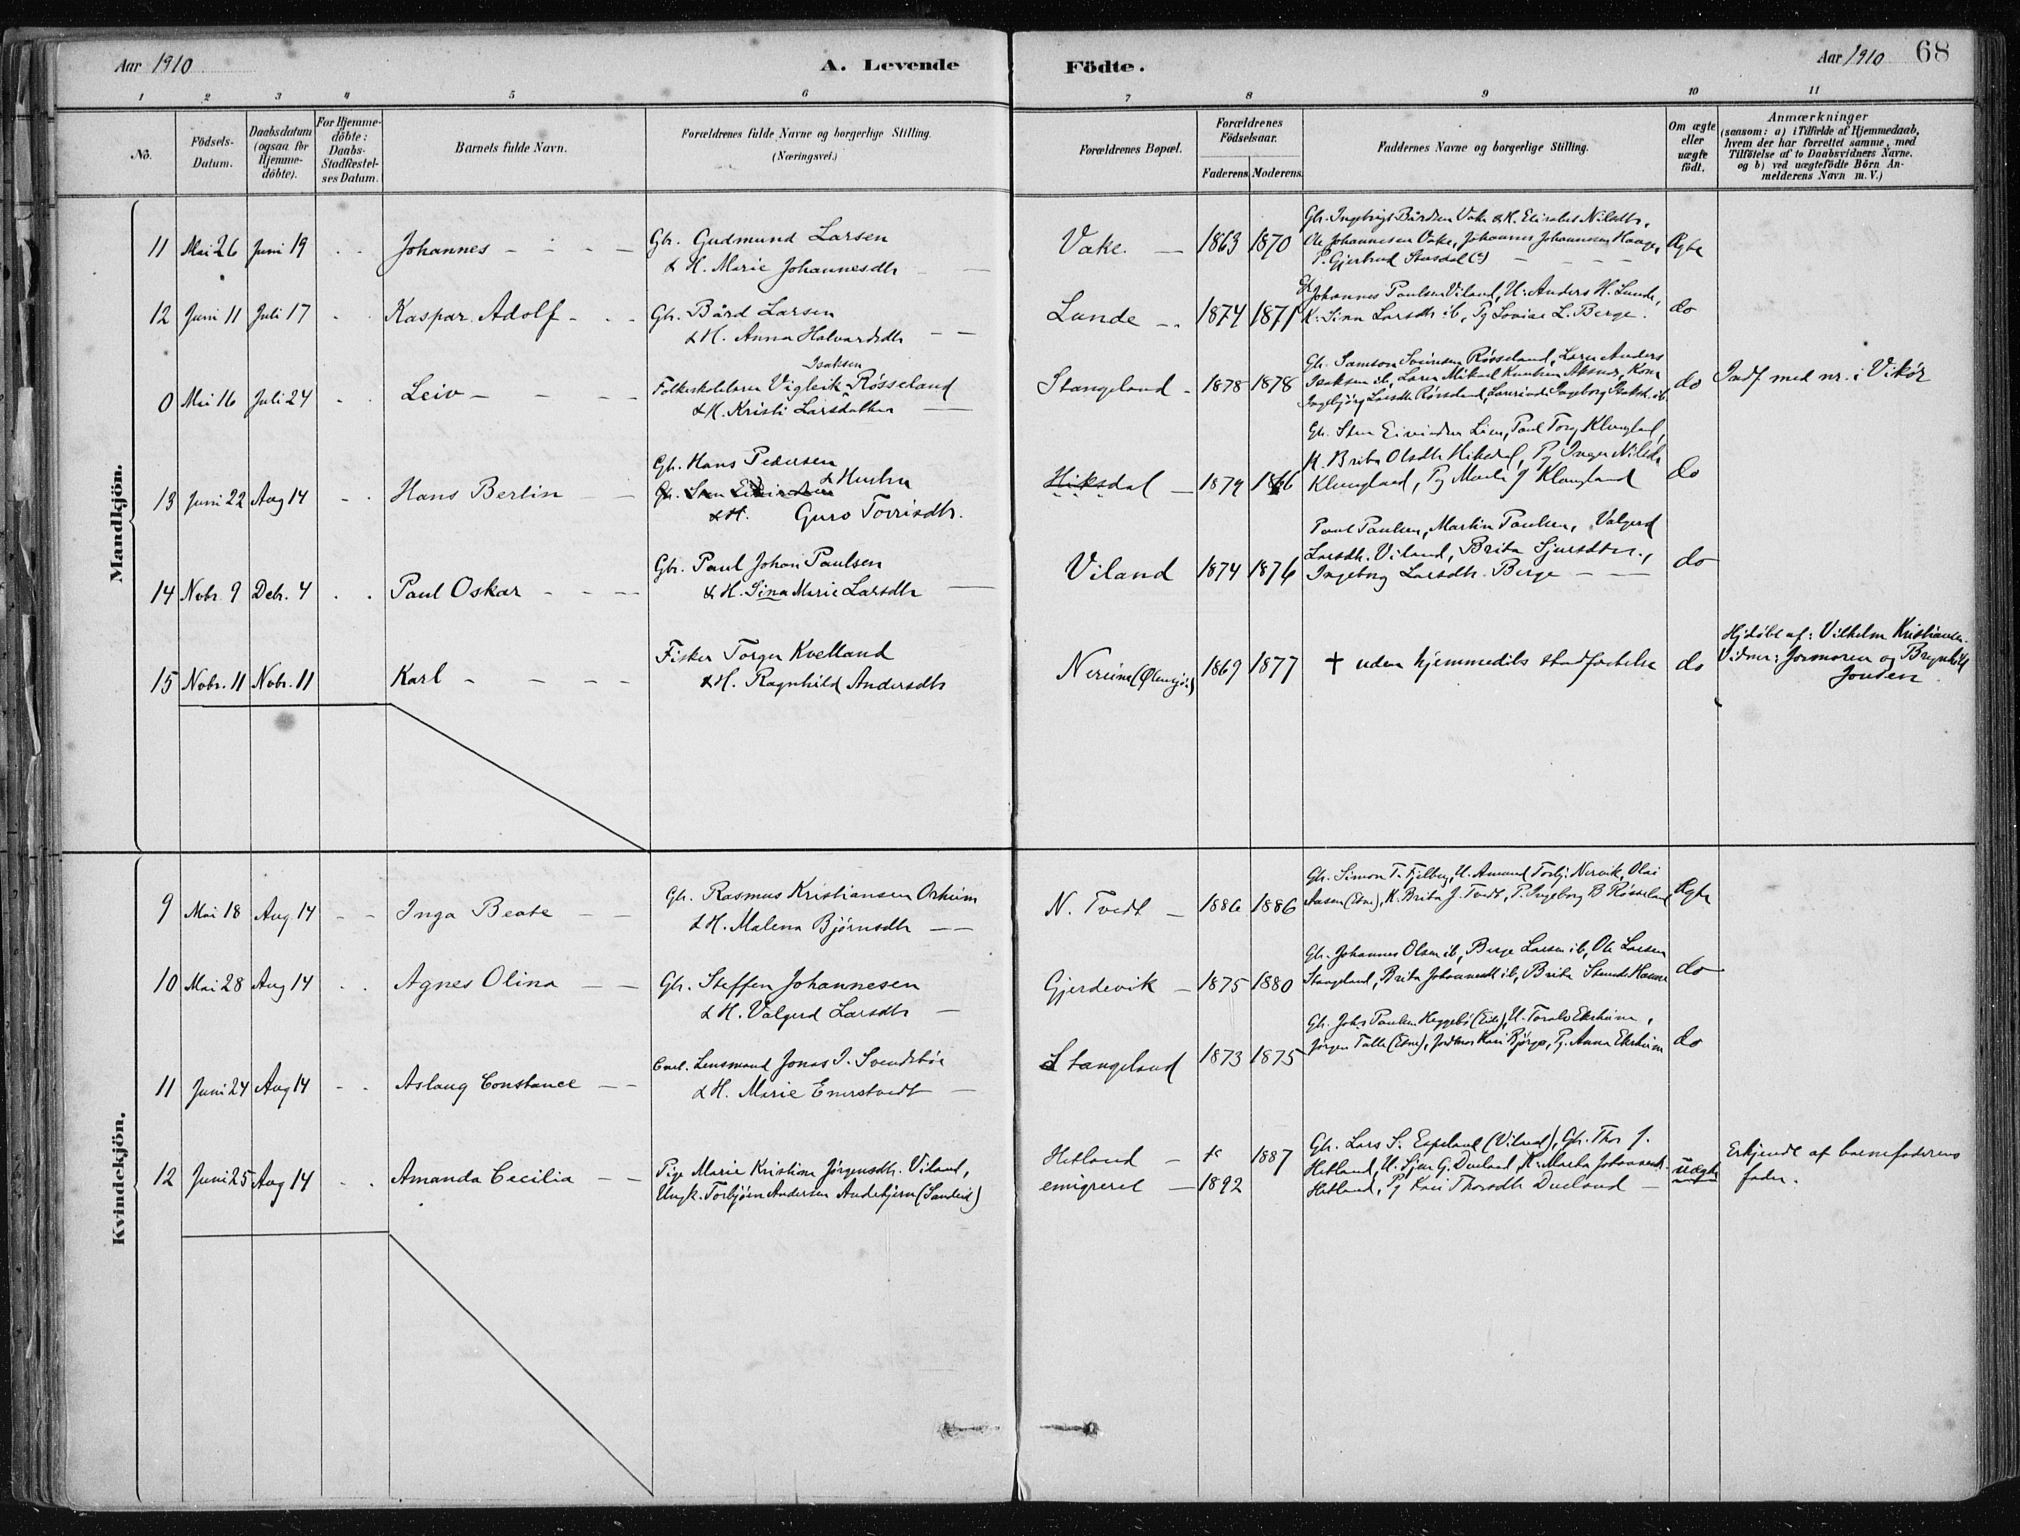 Aar 1910
A. Levende
Födte.
Aar 1910
68
1 2 3 4 5 6 7 8 9 10 11
No.
Födsels-
Datum.
Daabsdatum
(ogsaa for
Hjemme-
döbte).
For Hjemme-
döbte:
Daabs-
Stadfæstel-
ses Datum.
Barnets fulde Navn.
Forældrenes fulde Navne og borgerlige Stilling.
(Næringsvei.)
Forældrenes Bopæl.
Forældrenes
Födselsaar.
Faderens. Moderens.
Faddernes Navne og borgerlige Stilling.
Om ægte
eller
uægte
födt.
Anmærkninger
(saasom: a) i Tilfælde af Hjemmedaab,
hvem der har forrettet samme, med
Tilföielse af to Daabsvidners Navne,
og b) ved uægtefödte Börn An-
melderens Navn m. V.)
Mandkjön.
11 Mai 26 Juni 19 Johannes
Gbr. Gudmund Larsen
& H. Marie Johannesdtr
Vake 1863 1870
Ole Johannesen Vake, Johannes Johannesen Hauge,
Ægte
12 Juni 11 Juli 17 Kaspar Adolf
Gbr. Bård Larsen
& H. Anna Halvardsdtr
Lunde 1874 1871
Johannes Paulsen Viland, U. Anders H. Lunde,
K. Sina Larsdtr ib, Pg Lovise L. Berge.
do
0 Mai 16 Juli 24 Leiv
Isaksen
Folkeskolelærer Vigleik Røsseland
& H. Kristi Larsdatter
Stangeland 1878 1878
Gbr. Samson Røsseland, Lærer Anders
Isaksen ib, Lærer Mikael Knutsen Aksnes, Kone
Ingebjörg Larsdtr Røsseland, Ingeborg
do
Indf med nr. i Vikör
13 Juni 22 Aug 14 Hans Bertin
Gbr. Hans Pedersen
& Hustru
& H. Guro Torrisdtr.
Hiksdal 1879 1866
Gbr. Sten Eivindsen Lien, Paul Torg Klungland,
K. Brita Olsdtr Hiksdal, Pg Inger Nilsdtr
Klungland, Pg Marta J Klungland
do
14 Nobr. 9 Debr. 4 Paul Oskar
Gbr. Paul Johan Paulsen
& H. Sina Marie Larsdtr
Viland 1874 1876
Paul Paulsen, Martin Paulsen, Valgerd
Larsdtr. Viland, Brita Sjursdtr.,
Ingeborg Larsdtr. Berge
do
15 Nobr. 11 Nobr. 11 Karl
Fisker Torger Kvelland
& H. Ragnhild Andersdtr
Nerium 1869 1877
† uden hjemmedåbs stadfæstelse
do
Hjdöbt af: Vilhelm Kristiansen.
Vidner: Jormoren og Brynhild
Jonsen
Kvindekjön.
9 Mai 18 Aug 14 Inga Beate
Gbr. Rasmus Kristiansen Orheim
& H. Malena Björnsdtr
N. Tvedt 1886 1886
Gbr. Simon T. Fjelberg, U. Amund Torbj. Nervik, Olai
Aasen (Etne), K. Brita J. Tvedt, P. Ingeborg B Røsseland
Ægte
10 Mai 28 Aug 14 Agnes Olina
Gbr. Steffen Johannesen
& H. Valgerd Larsdtr
Gjerdevik 1875 1880
Gbr. Johannes Olsen ib, Berge Larsen ib, Ole Larsen
Stangeland, Brita Johannesdtr ib, Brita
do
11 Juni 24 Aug 14 Aslaug Constance
Lensmand Jonas J. Svendsböe
& H. Marie Enerstvedt
Stangeland 1873 1875
Gbr. Johs Paulsen Heggebö, U. Torals Ekrheim,
Jörgen Talle (Etne), Jordmor Kari Björge, Pg. Anna Ekrheim
do
12 Juni 25 Aug 14 Amanda Cecilia
Pige Marie Kristine Jörgensdtr. Viland,
Ungk. Torbjörn Andersen Andebjörn (Sandeid)
Hetland
emigreret
1892
1887
Gbr. Lars S. Espeland (Viland), Gbr. Thor J.
Hetland, U. Sjur G. Dueland, K. Marta Johannesdtr.
Hetland, Pg Kari Thorsdtr Dueland
uægte
Erkjendt af barnefaderens
fader.